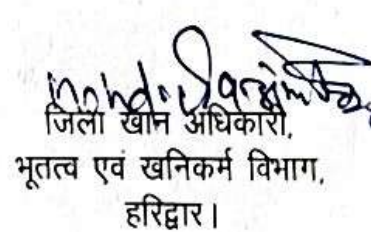 जिला खान अधिकारी,
भूतत्व एवं खनिकर्म विभाग,
हरिद्वार।